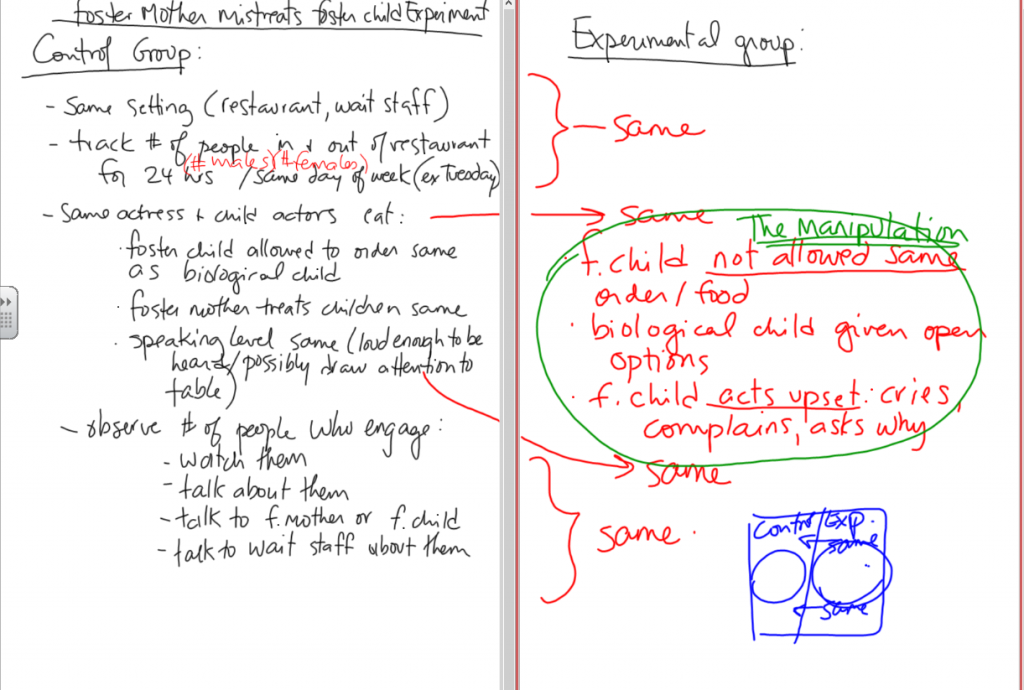 foster Mother mistreats foster child Experiment
Control Group:
- Same setting (restaurant, wait staff)
- track # of people in + out of restaurant
(# males)(# females)
for 24 hrs / same day of week (ex Tuesday)
- Same actress + child actors eat:
· foster child allowed to order same
as biological child
· foster mother treats children same
· speaking level same (loud enough to be
heard / possibly draw attention to
table)
- observe # of people who engage:
- watch them
- talk about them
- talk to f. mother or f. child
- talk to wait staff about them
Experimental group:
- same
same
The Manipulation
· f. child not allowed same
order / food
· biological child given open
options
· f. child acts upset: cries,
complains, asks why
same
same.
Control / Exp.
same
same